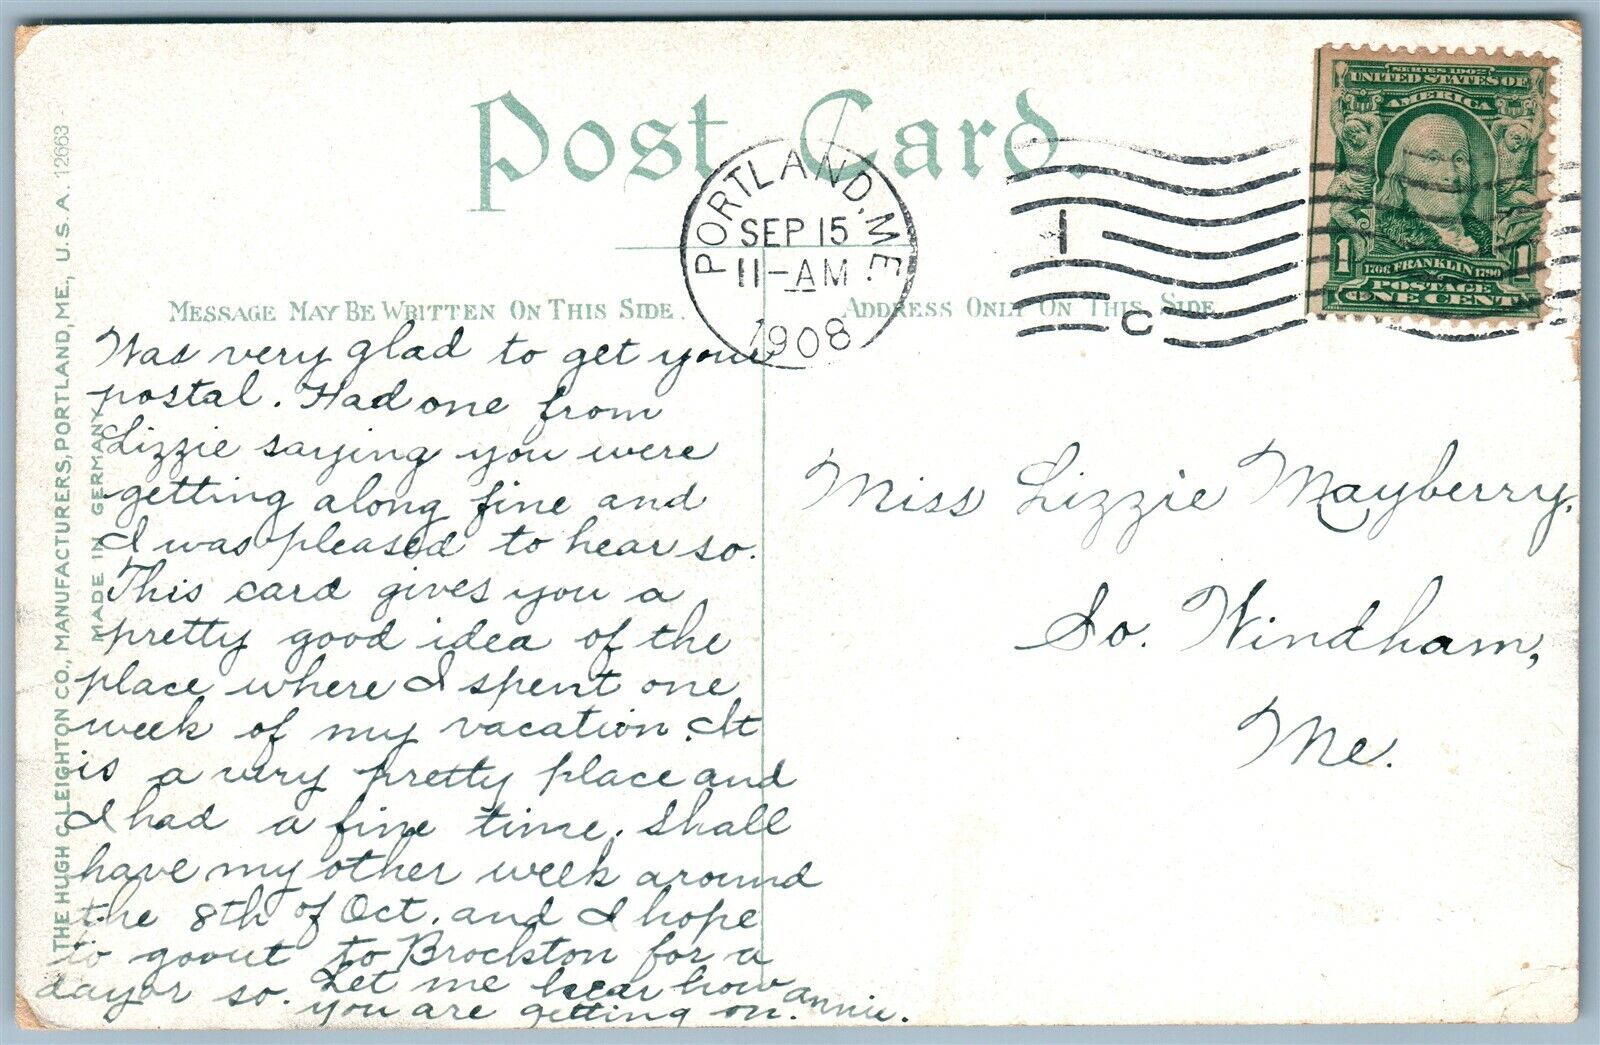 Post Card.
PORTLAND, ME.
SEP 15
11-AM
1908
1
C
SERIES 1902
UNITED STATES OF
AMERICA
1 1
1706 FRANKLIN 1790
POSTAGE
ONE CENT
MESSAGE MAY BE WRITTEN ON THIS SIDE.
ADDRESS ONLY ON THIS SIDE
Was very glad to get your
postal. Had one from
Lizzie saying you were
getting along fine and
I was pleased to hear so.
This card gives you a
pretty good idea of the
place where I spent one
week of my vacation. It
is a very pretty place and
I had a fine time. Shall
have my other week around
the 8th of Oct. and I hope
to go out to Brockton for a
day or so. Let me hear how
you are getting on. Annie.
Miss Lizzie Mayberry,
So. Windham,
Me.
THE HUGH C. LEIGHTON CO., MANUFACTURERS, PORTLAND, ME., U. S. A. 12663
MADE IN GERMANY